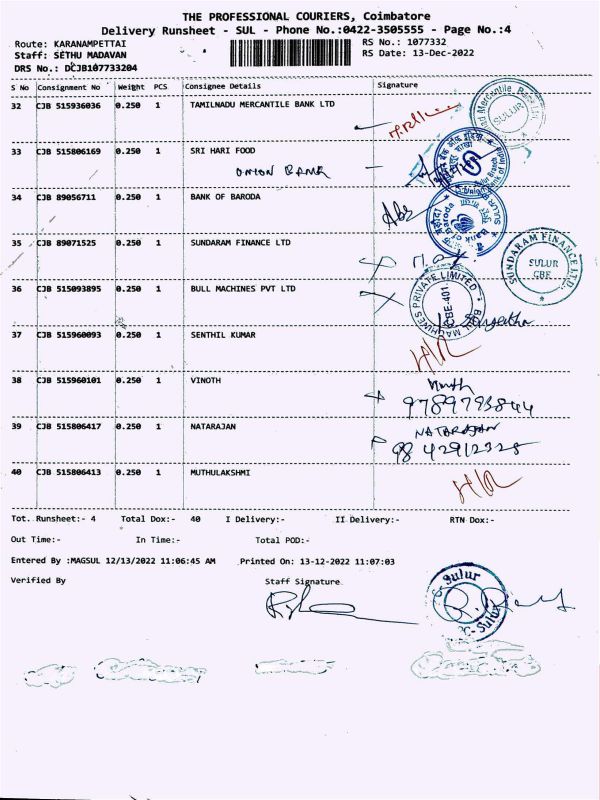 THE PROFESSIONAL COURIERS, Coimbatore
Delivery Runsheet - SUL - Phone No.:0422-3505555 - Page No.:4
Route: KARANAMPETTAI RS No.: 1077332
Staff: SETHU MADAVAN RS Date: 13-Dec-2022
DRS No.: DCJB107733204
S No Consignment No Weight PCS Consignee Details Signature
32 CJB 515936036 0.250 1 TAMILNADU MERCANTILE BANK LTD
SULUR
33 CJB 515806169 0.250 1 SRI HARI FOOD
UNION BANK
34 CJB 89056711 0.250 1 BANK OF BARODA
Bank of Baroda
35 CJB 89071525 0.250 1 SUNDARAM FINANCE LTD
SUNDARAM FINANCE LTD.
SULUR
CBE
36 CJB 515093895 0.250 1 BULL MACHINES PVT LTD
BULL MACHINES PRIVATE LIMITED
CBE-401
37 CJB 515960093 0.250 1 SENTHIL KUMAR
38 CJB 515960101 0.250 1 VINOTH
9789793844
39 CJB 515806417 0.250 1 NATARAJAN
NATARAJAN
9842912325
40 CJB 515806413 0.250 1 MUTHULAKSHMI
Tot. Runsheet:- 4 Total Dox:- 40 I Delivery:- II Delivery:- RTN Dox:-
Out Time:- In Time:- Total POD:-
Entered By :MAGSUL 12/13/2022 11:06:45 AM Printed On: 13-12-2022 11:07:03
Verified By Staff Signature
Sulur